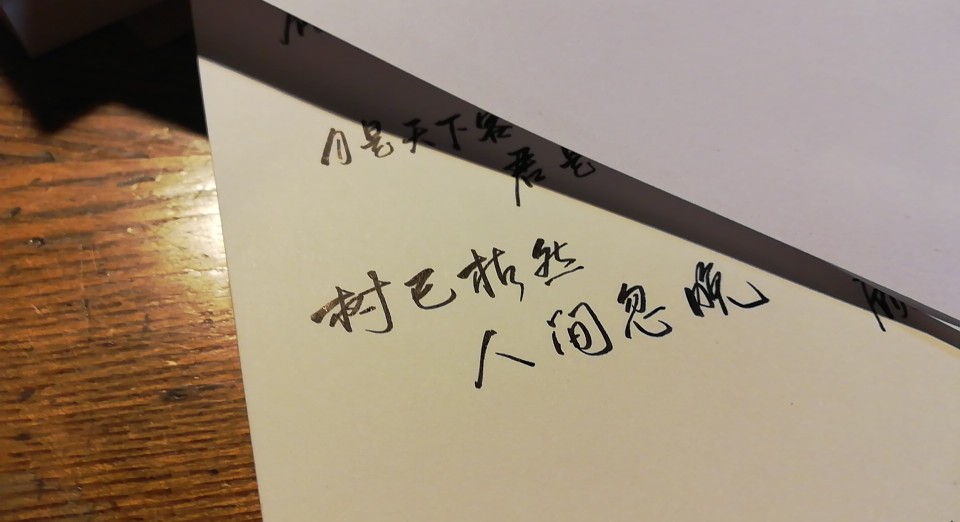 月是天下客
君是
树已枯然
人间忽晚